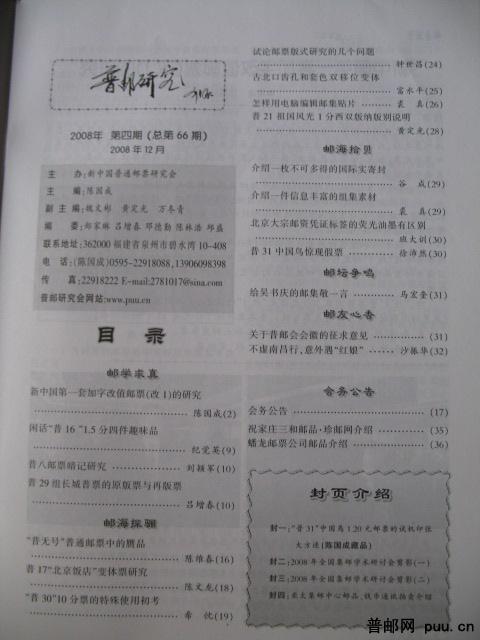 普邮研究
2008年 第四期（总第66期）
2008年12月
主 办:新中国普通邮票研究会
主 编:陈国成
副主编:魏文彬 黄定光 万冬青
编 委:邱家琳 吕增春 邓德勤 陈林浩 邱盛
联系地址:362000 福建省泉州市碧水湾10-408
电 话:(陈国成)0595-22918088,13906098398
传 真:22918222 E-mail:2781017@sina.com
普邮研究会网站:www.puu.cn
目 录
邮学求真
新中国第一套加字改值邮票(改1)的研究
陈国成(2)
闲话“普16”1.5分四件趣味品
纪觉英(9)
普八邮票暗记研究 刘颖军(10)
普29组长城普票的原版票与再版票
吕增春(10)
邮海探骊
“普无号”普通邮票中的赝品
陈维春(16)
普17“北京饭店”变体票研究
陈文龙(18)
“普30”10分票的特殊使用初考
希 忱(19)
试论邮票版式研究的几个问题
钟世昌(24)
古北口齿孔和套色双移位变体
富永平(25)
怎样用电脑编辑邮集贴片 裘真(26)
普21祖国风光1分西双版纳版别说明
黄定光(28)
邮海拾贝
介绍一枚不可多得的国际实寄封
谷 成(29)
介绍一件信息丰富的组集素材
裘真(29)
北京大宗邮资凭证标签的荧光油墨有区别
班大训(30)
普31中国鸟惊现假票 徐沛然(30)
邮坛争鸣
给吴书庆的邮集敬一言 马宏奎(31)
邮友心香
关于普邮会会徽的征求意见 (31)
不虚南昌行,意外遇“红娘” 沙振华(32)
会务公告
会务公告 (17)
祝家庄三和邮品·珍邮网介绍 (35)
蟠龙邮票公司邮品介绍 (36)
封页介绍
封一:“普31”中国鸟1.20元邮票的试机印张
大方连(陈国成藏品)
封二:2008年全国集邮学术研讨会剪影(一)
封三:2008年全国集邮学术研讨会剪影(二)
封四:亚太集邮中心邮品、钱币通讯拍卖介绍
普邮网 puu.cn